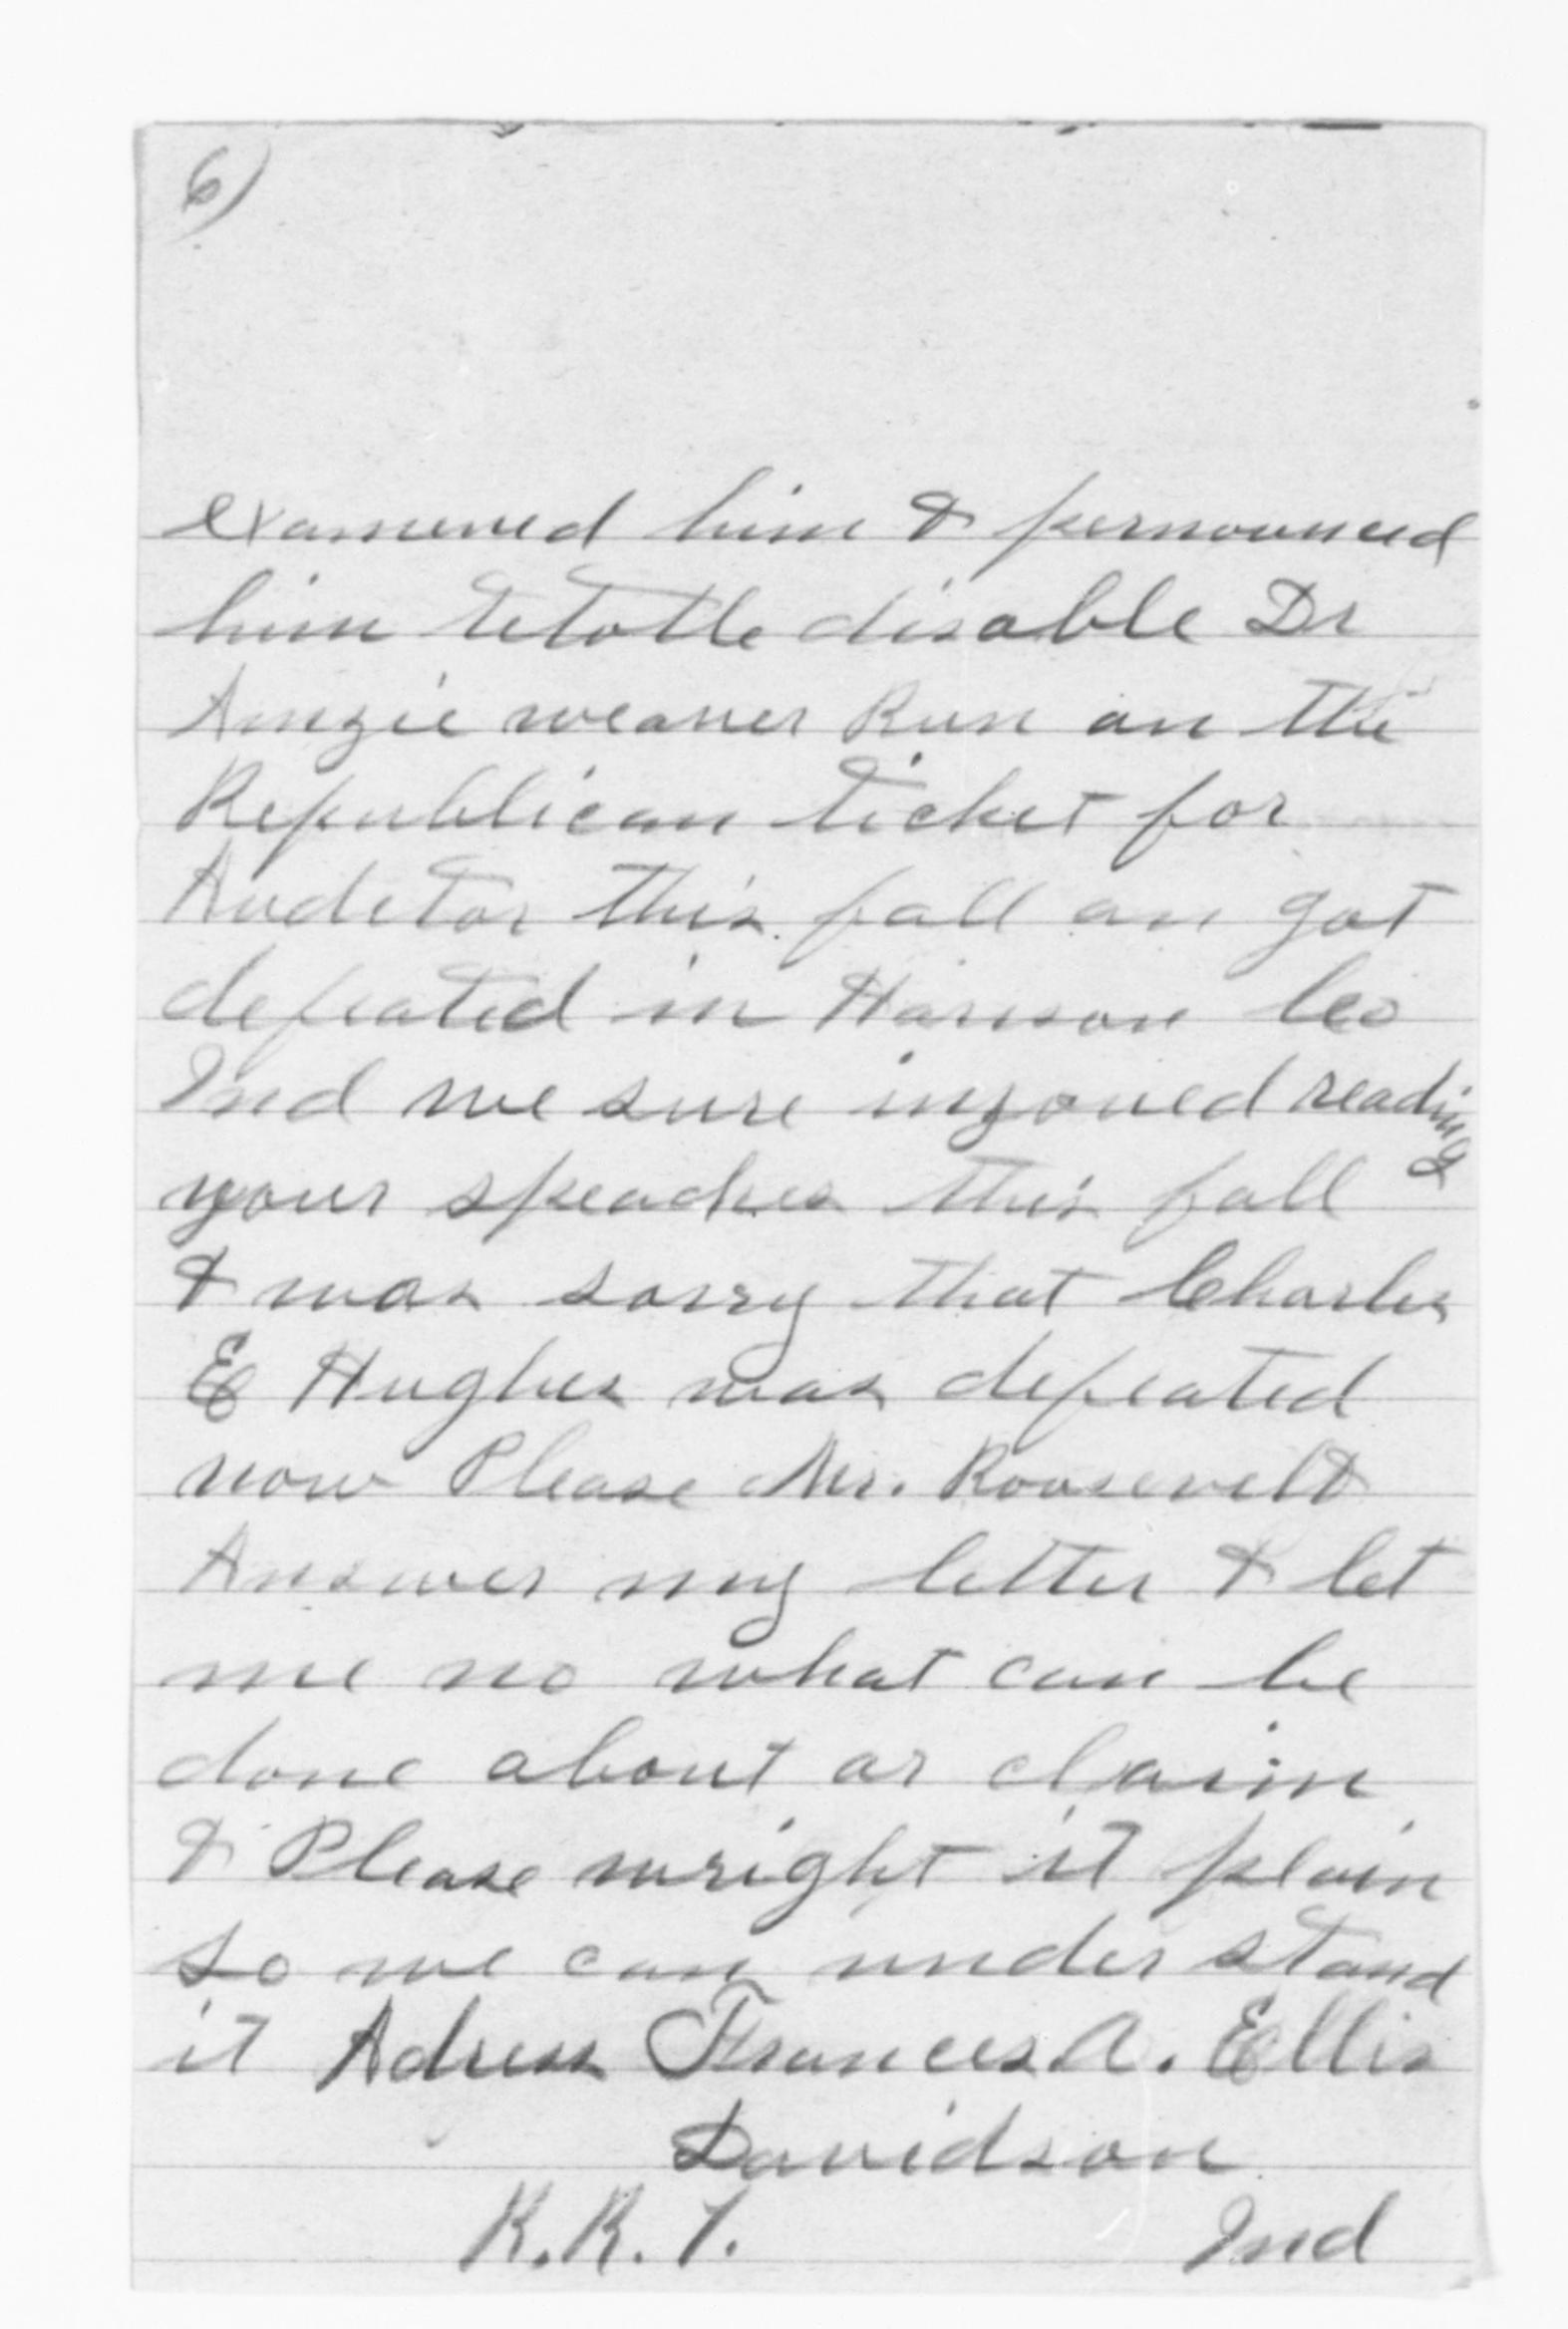 6)
examened him & pernounced
him tototle disable Dr
Amzie weaver Run on the
Republican ticket for
Audetor this fall an got
defeated in Harrison Co
Ind we sure injoued reading
your speaches this fall
& was sorry that Charles
E Hughes was defeated
now Please Mr. Roosevelt
Answer my letter & let
me no what can be
done about or claim
& Please wright it plain
so we can under stand
it Adress Frances A. Ellis
Davidson
R.R. 1. Ind